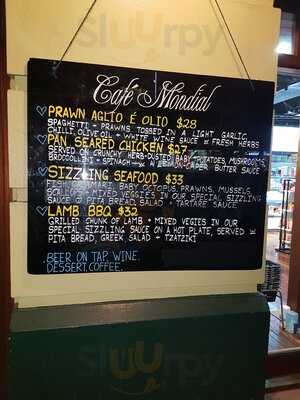 Sluurpy
Café Mondial
PRAWN AGLIO É OLIO $28
SPAGHETTI + PRAWNS TOSSED IN A LIGHT GARLIC,
CHILLI, OLIVE OIL + WHITE WINE SAUCE FRESH HERBS
PAN SEARED CHICKEN $27
SERVED ON CRUNCHY HERB-DUSTED BABY POTATOES, MUSHROOMS,
BROCCOLINI + SPINACH A BUTTER SAUCE
SIZZLING SEAFOOD $33
BABY OCTOPUS, PRAWNS, MUSSELS,
MIXED VEGGIES IN OUR SPECIAL SIZZLING
SAUCE PITA BREAD, SALAD + TARTARE SAUCE
LAMB BBQ $32
GRILLED CHUNK OF LAMB + MIXED VEGIES IN OUR
SPECIAL SIZZLING SAUCE ON A HOT PLATE, SERVED
PITA BREAD, GREEK SALAD + TZATZIKI
BEER ON TAP. WINE.
DESSERT. COFFEE.
Sluurpy